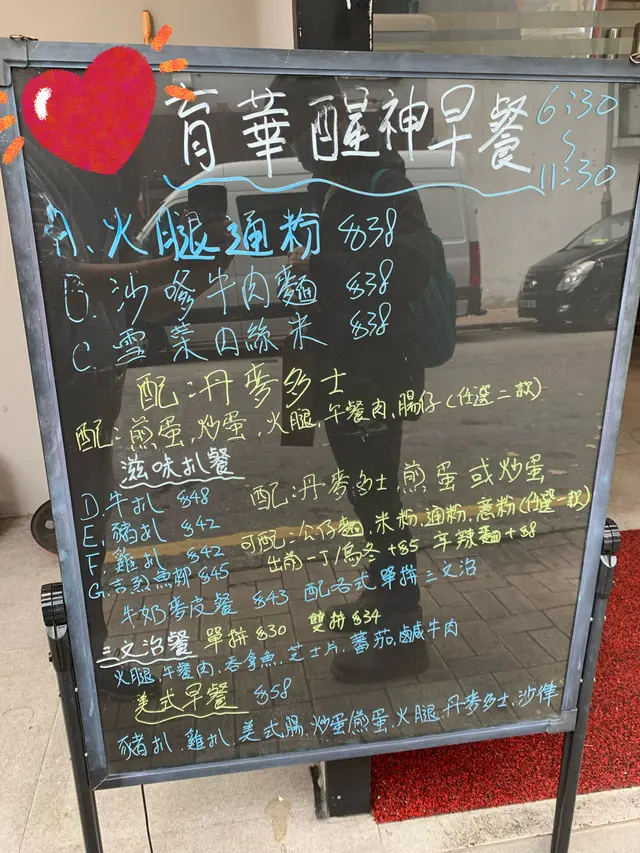 育華醒神早餐 6:30 ~ 11:30
A. 火腿通粉 $38
B. 沙爹牛肉麵 $38
C. 雪菜肉絲米 $38
配:丹麥多士
配:煎蛋,炒蛋,火腿,午餐肉,腸仔(任選二款)
滋味扒餐
D. 牛扒 $48 配:丹麥多士,煎蛋或炒蛋
E. 豬扒 $42
F. 雞扒 $42 可配:公仔麵,米粉,通粉,意粉(任選一款)
G. 吉列魚柳 $45 出前一丁/烏冬 +$5 辛辣麵 +$8
牛奶麥皮餐 $43 配各式單拼三文治
三文治餐 單拼 $30 雙拼 $34
火腿,午餐肉,吞拿魚,芝士片,蕃茄,鹹牛肉
美式早餐 $58
豬扒,雞扒,美式腸,炒蛋/煎蛋,火腿,丹麥多士,沙律